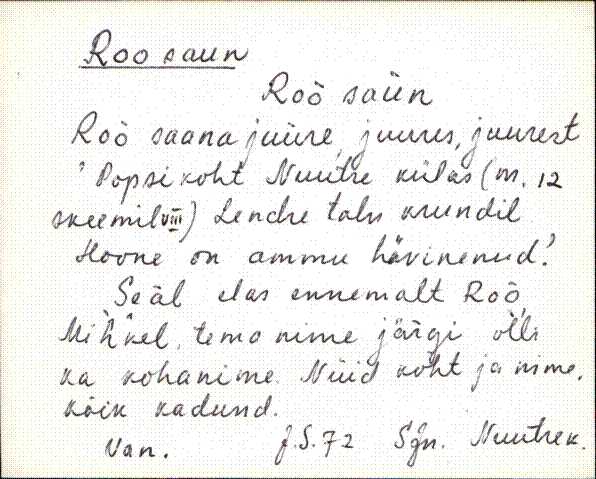 Roo saun
Roò saün
Roò saana juüre, juures, juurest
'Popsikoht Nuutre külas (nr. 12
skeemil VIII) Lendre talu krundil
Hoone on ammu hävinenud.'
Seäl elas ennemalt Roò
Mihkel, temo nime järgi olli
ka kohanime. Nüid koht ja nime,
kõik kadund.
Van. J.S. 72 Sjn. Nuutre k.